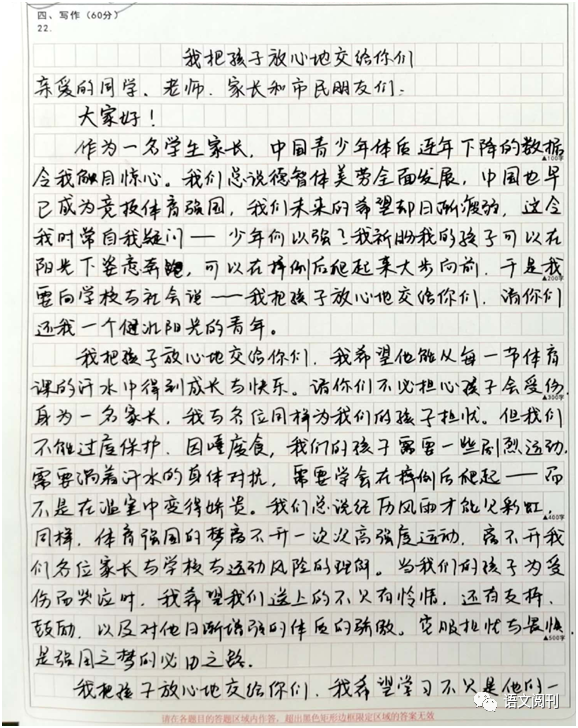 四、写作（60分）
22.
我把孩子放心地交给你们
亲爱的同学、老师、家长和市民朋友们：
大家好！
作为一名学生家长，中国青少年体质连年下降的数据
▲100字
令我触目惊心。我们总说德智体美劳全面发展，中国也早
已成为竞技体育强国，我们未来的希望却日渐疲弱，这令
我时常自我疑问——少年何以强？我新盼我的孩子可以在
阳光下姿态奔跑，可以在摔倒后爬起来大步向前，于是我
▲200字
要向学校与社会说——我把孩子放心地交给你们，请你们
还我一个健壮阳光的青年。
我把孩子放心地交给你们，我希望他能从每一节体育
课的汗水中得到成长与快乐。请你们不必担心孩子会受伤，
▲300字
身为一名家长，我与各位同样为我们的孩子担忧。但我们
不能过度保护、因噎废食，我们的孩子需要一些剧烈运动，
需要淌着汗水的身体对抗，需要学会在摔倒后爬起——而
不是在温室中变得娇贵。我们总说经历风雨才能见彩虹，
▲400字
同样，体育强国的梦离不开一次次高强度运动，离不开我
们各位家长与学校与运动风险的理解。当我们的孩子为受
伤而哭泣时，我希望我们送上的不只有怜惜，还有支持、
鼓励，以及对他日渐增强的体质的骄傲。克服担忧与畏惧，
▲500字
是强国之梦的必由之路。
我把孩子放心地交给你们，我希望学习不只是他们一
请在各题目的答题区域内作答，超出黑色矩形边框限定区域的答案无效
语文阅刊